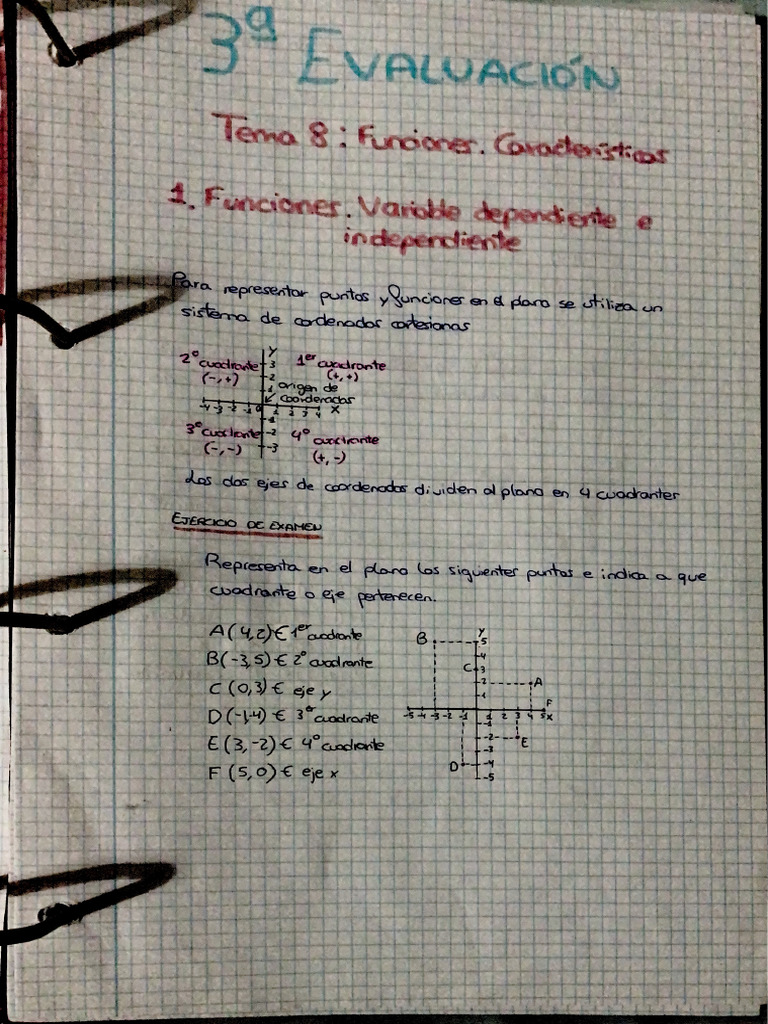 3ª EVALUACIÓN
Tema 8: Funciones. Características
1. Funciones. Variable dependiente e
independiente
Para representar puntos y funciones en el plano se utiliza un
sistema de cordenadas cartesianas
Y
2º cuadrante 3 1er cuadrante
(-,+) 2 (+,+)
1 origen de
coordenadas
-4 -3 -2 -1 0 1 2 3 4 X
-1
3º cuadrante -2 4º cuadrante
(-,-) -3 (+,-)
Los dos ejes de coordenadas dividen al plano en 4 cuadrantes
EJERCICIO DE EXAMEN
Representa en el plano los siguientes puntos e indica a que
cuadrante o eje pertenecen.
A(4,2)€ 1er cuadrante
B(-3,5)€ 2º cuadrante
C(0,3)€ eje y
D(-1,-4)€ 3er cuadrante
E(3,-2)€ 4º cuadrante
F(5,0)€ eje x
Y
B 5
4
C 3
2 A
1
F
-5 -4 -3 -2 -1 1 2 3 4 5 X
-1
-2 E
-3
D -4
-5